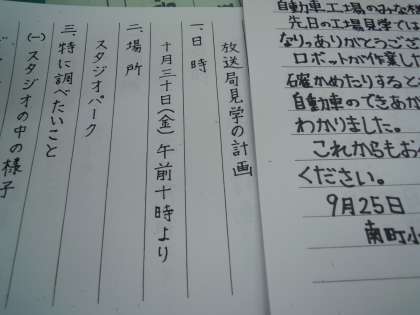 放送局見学の計画
一、日時
十月三十日(金)午前十時より
二、場所
スタジオパーク
三、特に調べたいこと
(一)スタジオの中の様子
自動車工場のみな
先日の工場見学では
なりありがとうござ
ロボットが作業した
確かめたりすると
自動車のできあが
わかりました。
これからもお
ください。
9月25日
南町小